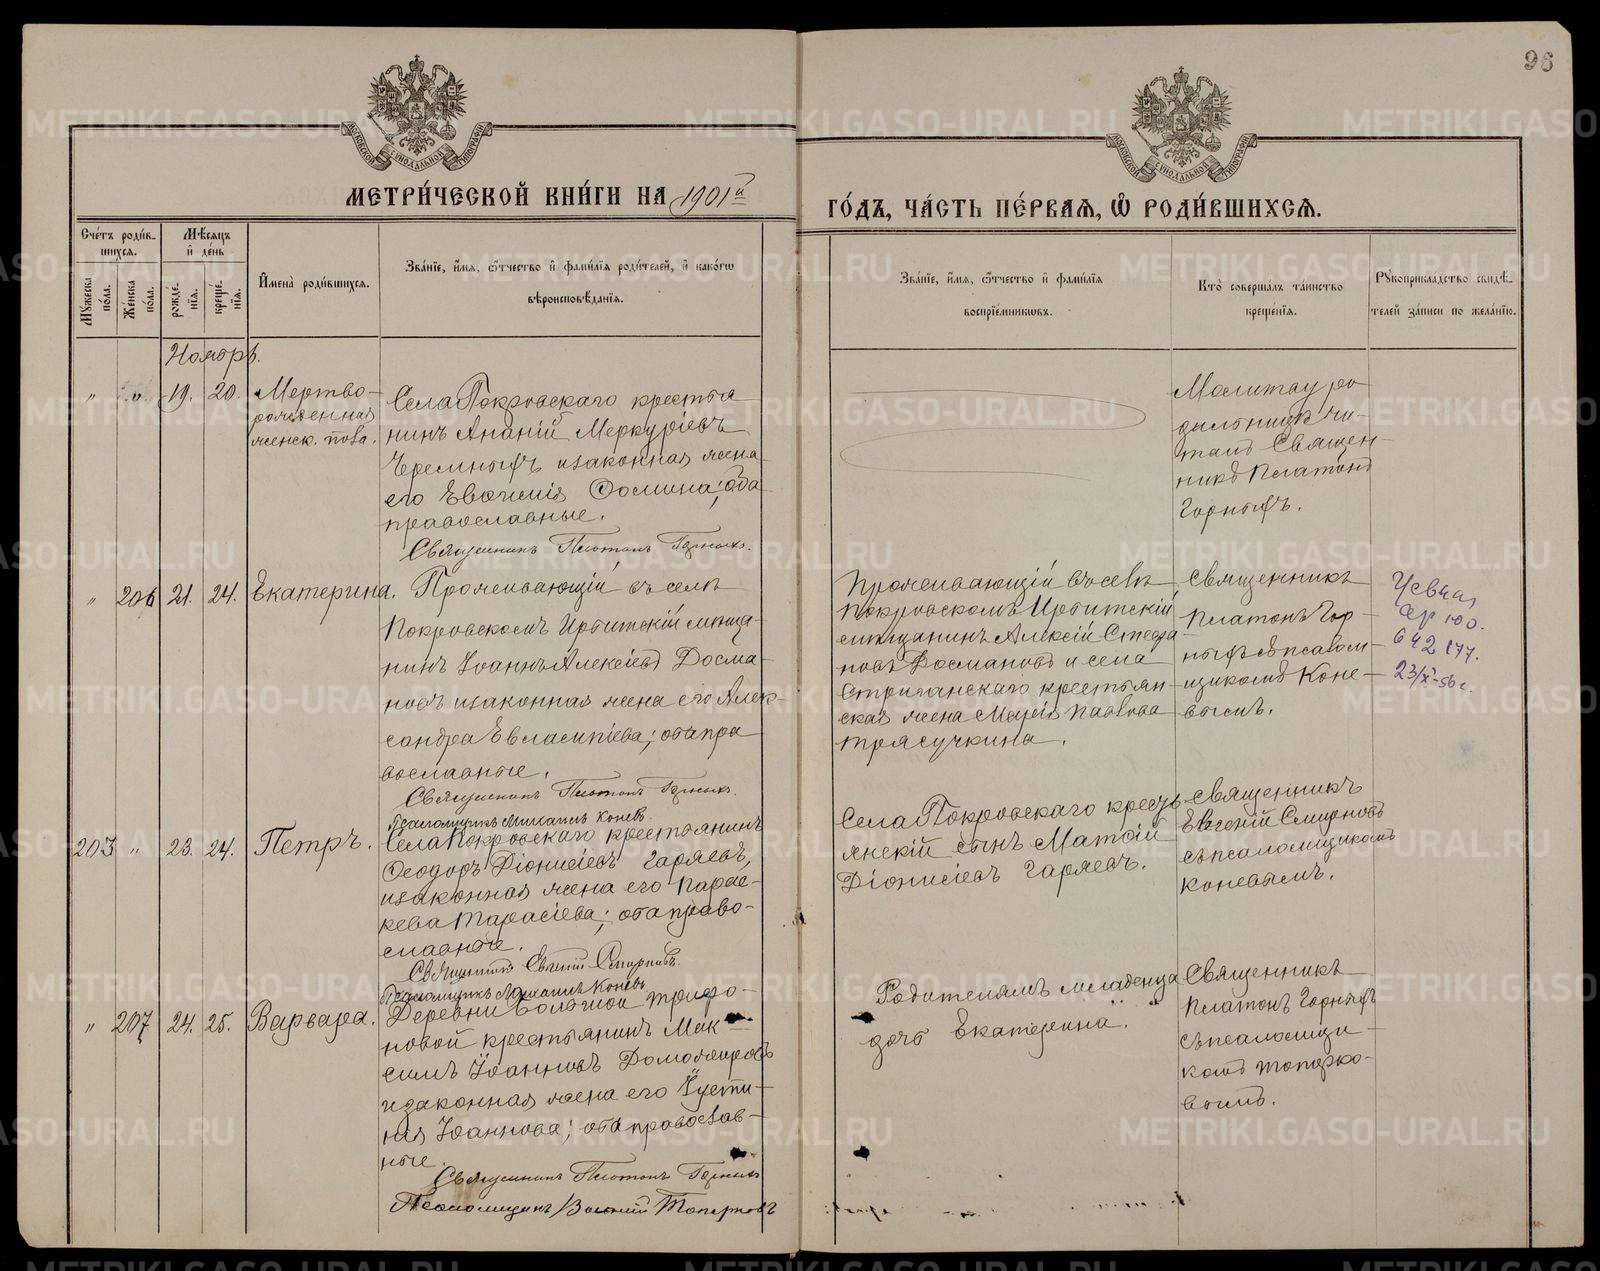 98
МЕТРИ́ЧЕСКОЙ КНИ́ГИ НА 1901й
ГО́ДЪ, ЧА́СТЬ ПЕ́РВАЯ, Ѡ РОДИ́ВШИХСЯ.
Сче́тъ роди́в-
шихся.
Мѣ́сяцъ
и҆ де́нь
Мꙋ́жеска
по́ла.
Же́нска
по́ла.
рожде́-
нїя.
креще́-
нїя.
И҆мена̀ роди́вшихся.
Зва́нїе, и҆́мя, ѻ҆́тчество и҆ фами́лїа роди́телей, и҆ како́гѡ
вѣроисповѣ́данїя.
Зва́нїе, и҆́мя, ѻ҆́тчество и҆ фами́лїа
воспрїе́мникѡвъ.
Кто̀ соверша́лъ та́инство
креще́нїя.
Рꙋкоприкла́дство свидѣ́-
телей за́писи по жела́нїю.
Ноябрь.
" " 19. 20. Мертво-
рожденная
женск. пола.
Села Покровскаго крестья
нинъ Ананій Меркуріевъ
Черемныхъ и законная жена
его Евгенія Фомина; оба
православные.
Священникъ Платонъ Горныхъ.
Молитву ро
дильницѣ чи-
талъ Священ-
никъ Платонъ
Горныхъ.
" 206 21. 24. Екатерина.
Проживающій въ селѣ
Покровскомъ Ирбитскій мѣща-
нинъ Іоаннъ Алексіевъ Досма-
новъ и законная жена его Алек-
сандра Евлампіева; оба пра
вославные.
Священникъ Платонъ Горныхъ.
Псаломщикъ Михаилъ Коневъ
Проживающій въ селѣ
Покровскомъ Ирбитскій
мѣщанинъ Алексій Стефа-
новъ Досмановъ и села
Стриганскаго крестьян-
ская жена Марія Павлова
Трясучкина.
Священникъ
Платонъ Гор-
ныхъ съ псалом-
щикомъ Коне-
вымъ.
642 177.
23/X-56 г.
203 " 23. 24. Петръ.
Села Покровскаго крестьянинъ
Ѳеодоръ Діонисіевъ Гаряевъ,
и законная жена его Парас-
кева Тарасіева; оба право-
славные.
Священникъ Евгеній Смирновъ.
Псаломщикъ Михаилъ Коневъ
Села Покровскаго кресть-
янскій сынъ Матѳій
Діонисіевъ Гаряевъ.
Священникъ
Евгеній Смирновъ
съ псаломщикомъ
Коневымъ.
" 207 24. 25. Варвара.
Деревни Больш[ой] Трифо-
новой крестьянинъ Мак-
симъ Іоанновъ Доможировъ
и законная жена его Іусти-
нія Іоаннова; оба православ-
ные.
Священникъ Платонъ Горныхъ
Псаломщикъ Василій Топорковъ
Родителямъ младенца
дочь Екатерина.
Священникъ
Платонъ Горныхъ
съ псаломщи-
комъ Топорко-
вымъ.
METRIKI.GASO-URAL.RU